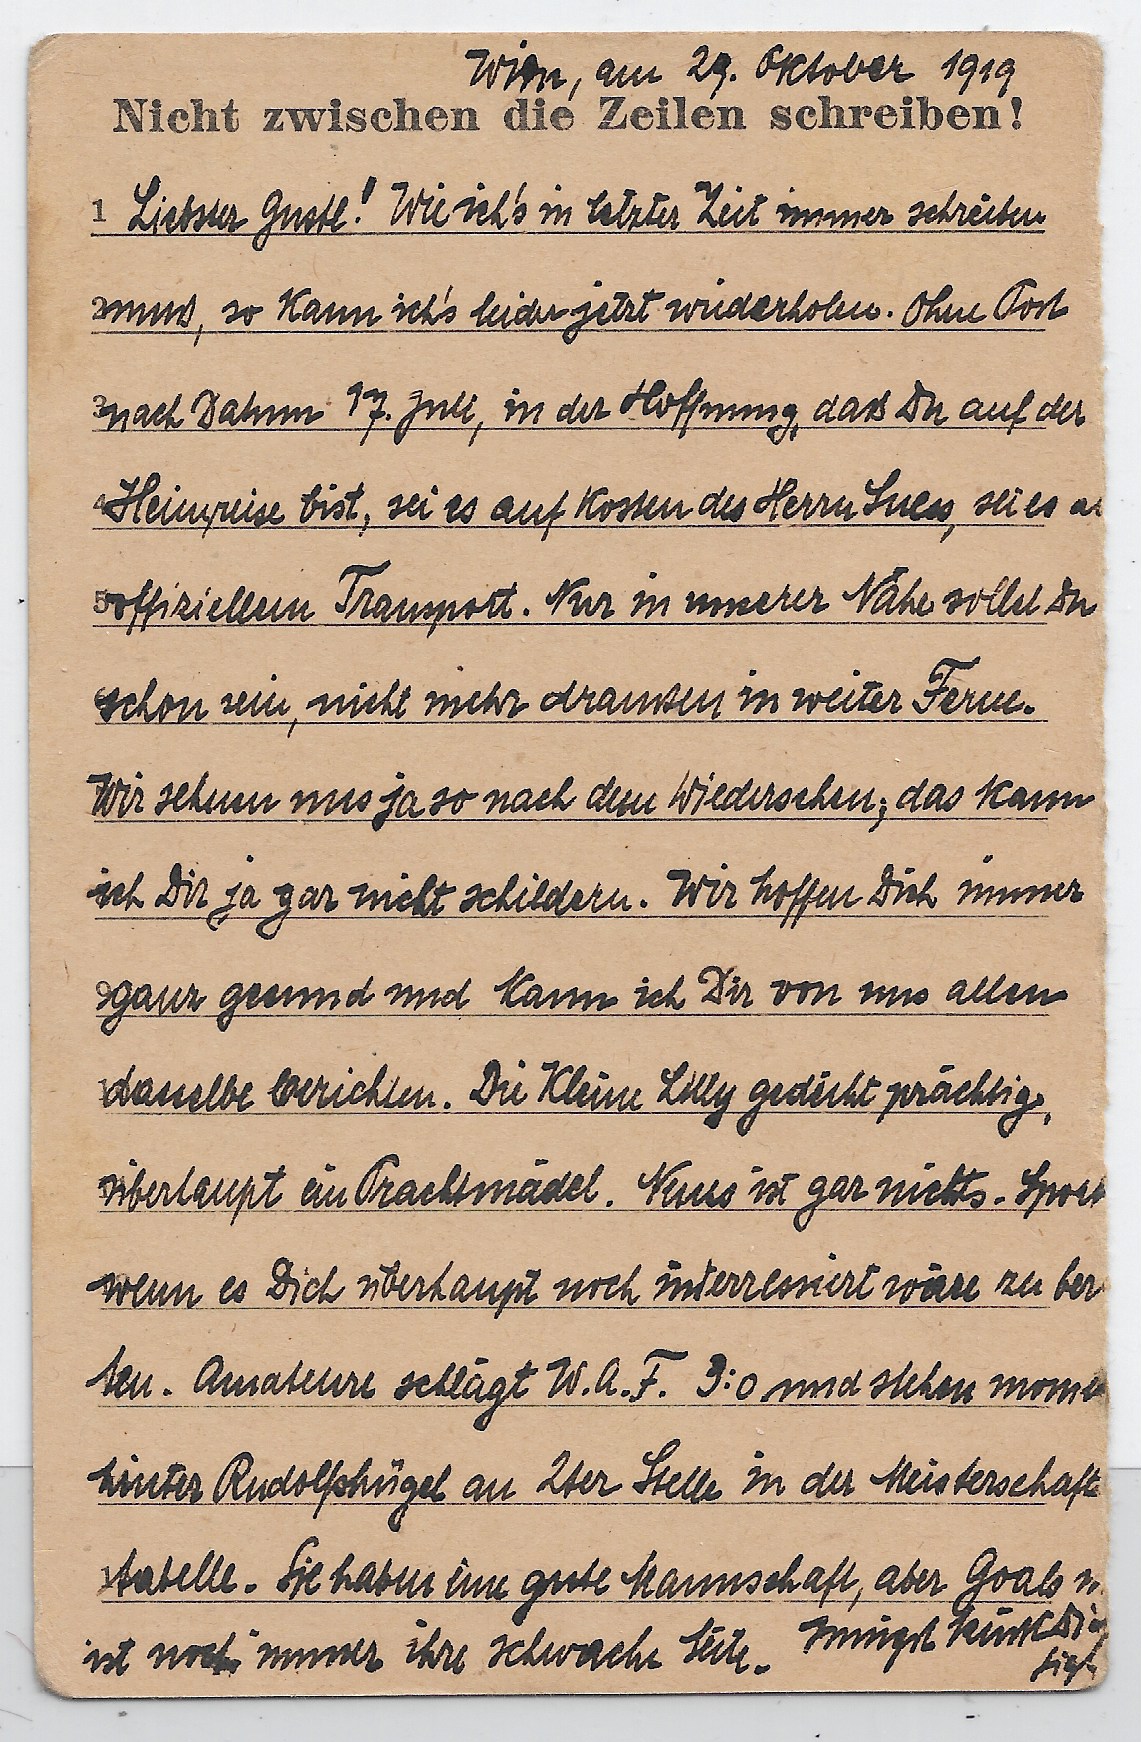 Wien, am 29. Oktober 1919
Nicht zwischen die Zeilen schreiben!
1 Liebster Gustl! Wie ich's in letzter Zeit immer schreiben
2 muss, so kann ich's leider jetzt wiederholen. Ohne Post
3 nach Datum 17. Juli, in der Hoffnung, dass Du auf der
4 Heimreise bist, sei es auf Kosten des Herrn, sei es
5 offiziellem Transport. Nur in unserer Nähe sollst Du
schon sein, nicht mehr draussen in weiter Ferne.
Wir sehnen uns ja so nach dem Wiedersehen; das kann
ich Dir ja gar nicht schildern. Wir hoffen Dich immer
9 ganz gesund und kann ich Dir von uns allen
dasselbe berichten. Die kleine Lilly gedeiht prächtig,
überhaupt ein Prachtmädel. Neues ist gar nichts. Sport
wenn es Dich überhaupt noch interressiert wäre zu ber
ten. Amateure schlägt W.A.F. 3:0 und stehen mome
hinter Rudolfshügel an 2ter Stelle in der Meisterschafts
tabelle. Sie haben eine gute Mannschaft, aber Goals
ist noch immer ihre schwache Seite. Innigst küsst Dich